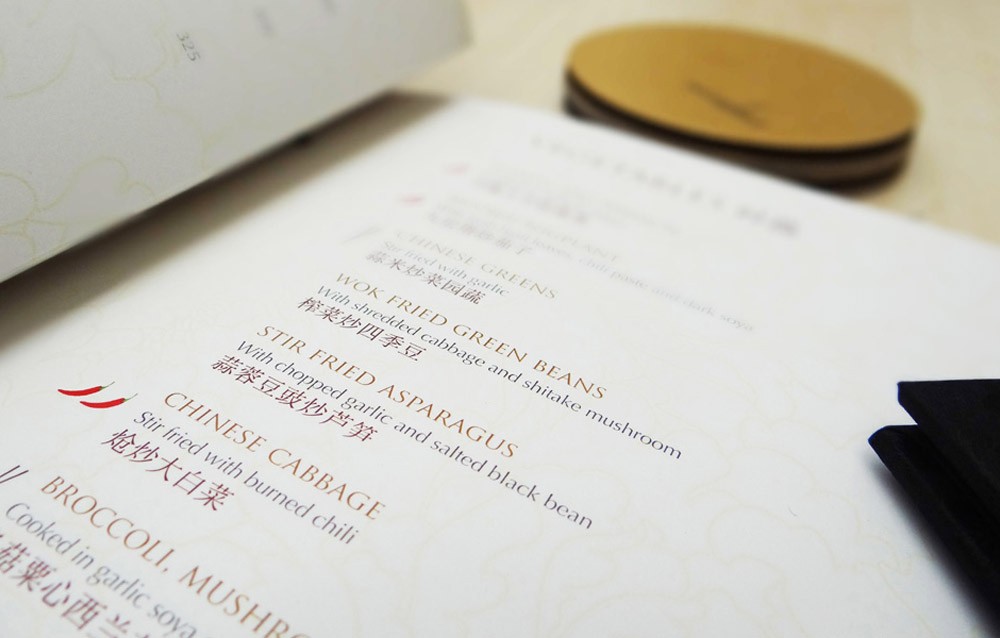 325
CHINESE GREENS
Stir fried with garlic
蒜米炒菜园蔬
WOK FRIED GREEN BEANS
With shredded cabbage and shitake mushroom
榨菜炒四季豆
STIR FRIED ASPARAGUS
With chopped garlic and salted black bean
蒜蓉豆豉炒芦笋
CHINESE CABBAGE
Stir fried with burned chili
炝炒大白菜
BROCCOLI,
Cooked in garlic soya
菇粟心西兰